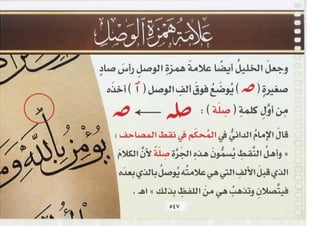 علامة همزة الوصل
وجعل الخليل أيضًا علامة همزة الوصل رأسَ صادٍ
صغيرةٍ ( صـ ) يُوضَعُ فوقَ ألِف الوصل ( ٱ ) أخذَه
مِن أوَّلِ كلمةِ ( صِلَة ) : صله ← صـ
قالَ الإمامُ الدانيُّ في المُحكَم في نقط المصاحف :
« وأهلُ النَّقطِ يُسمُّونَ هذهِ الجَرَّةَ صِلَةً لأنَّ الكلامَ
الذي قبلَ الألفِ التي هي علامتُه يُوصلُ بالذي بعدَه
فيتَّصلانِ وتذهبُ هي منَ اللفظِ بذلك » اهـ .
يُؤْمِنۢ بِٱللَّهِ وَ
٥٤٧